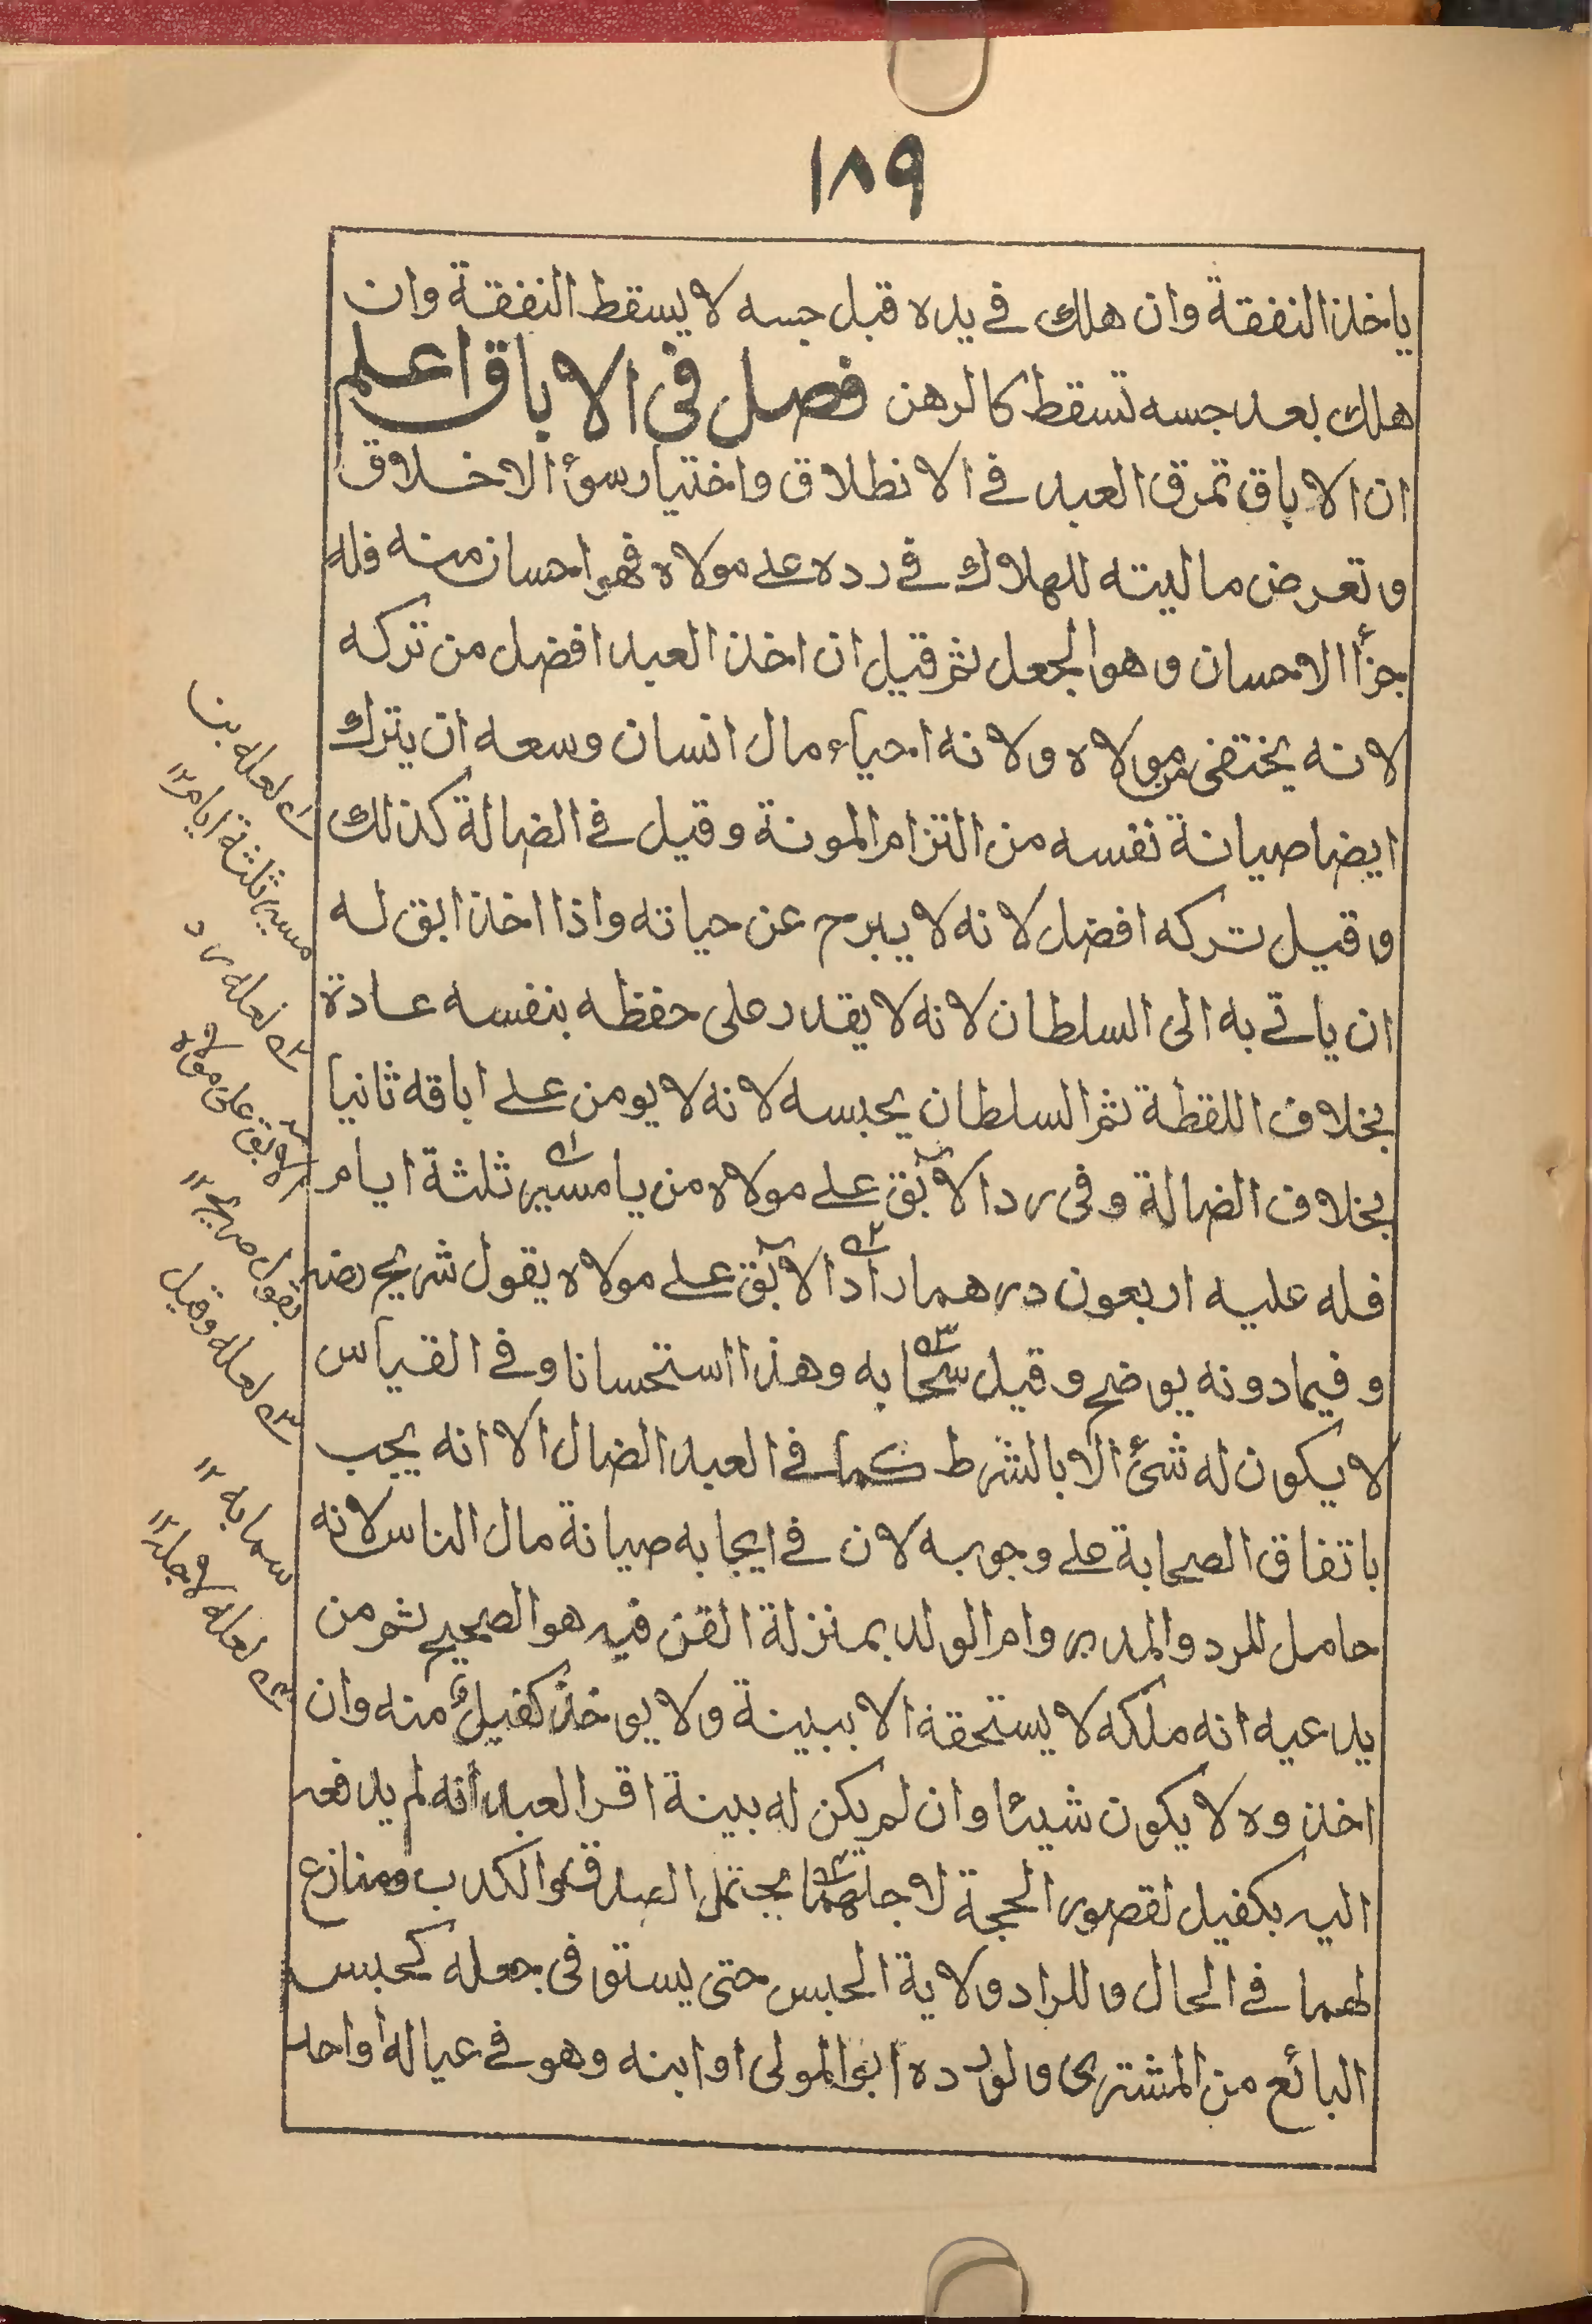 ١٨٩
ياخذ النفقة وان هلك في يده قبل حبسه لا يسقط النفقة وان
هلك بعد حبسه تسقط كالرهن فصل فى الاباق اعلم
ان الاباق تمرق العبد في الانطلاق واختيار سوئ الاخلاق
وتعرض ماليته للهلاك في رده على مولاه فهو احسان منه فله
جزأ الاحسان وهو الجعل ثم قيل ان اخذ العبد افضل من تركه
لانه يختفى من مولاه ولانه احياء مال انسان وسعه ان يترك
ايضا صيانة نفسه من التزام المونة وقيل في الضالة كذلك
وقيل تركه افضل لانه لا يبرح عن حياته واذا اخذ ابق له
ان ياتي به الى السلطان لانه لا يقدر على حفظه بنفسه عادة
بخلاف اللقطة ثم السلطان يحبسه لانه لا يومن على اباقه ثانيا
بخلاف الضالة وفى رد الآبق على مولاه من يا مسير ثلثة ايام
فله عليه اربعون درهما راد الآبق على مولاه يقول شريح رضه
وفيما دونه يوضح وقيل سحابه وهذا استحسانا وفي القياس
لا يكون له شئ الا بالشرط كما في العبد الضال الا انه يجب
باتفاق الصحابة على وجوبه لان في ايجابه صيانة مال الناس لانه
حامل للرد والمدبر وام الولد بمنزلة القن فيه هو الصحيح ثم من
يدعيه انه ملكه لا يستحقه الا ببينة ولا يوخذ كفيل منه وان
اخذوه لا يكون شيئا وان لم يكن له بينة اقر العبد انه لم يدفعه
اليه بكفيل لقصور الحجة لا جلتهما يحتمل الصدق والكدب ومنازع
لهما في الحال وللراد ولاية الحبس حتى يستوفى جعله كحبس
البائع من المشترى ولو رده ابو المولى او ابنه وهو في عياله او احد
لعله بنا
مسير ثلثة ايام ١٢
لعله رد
الآبق على مولاه
بقول صريح ١٢
لعله وقيل
سحابه ١٢
لعله لاجله ١٢